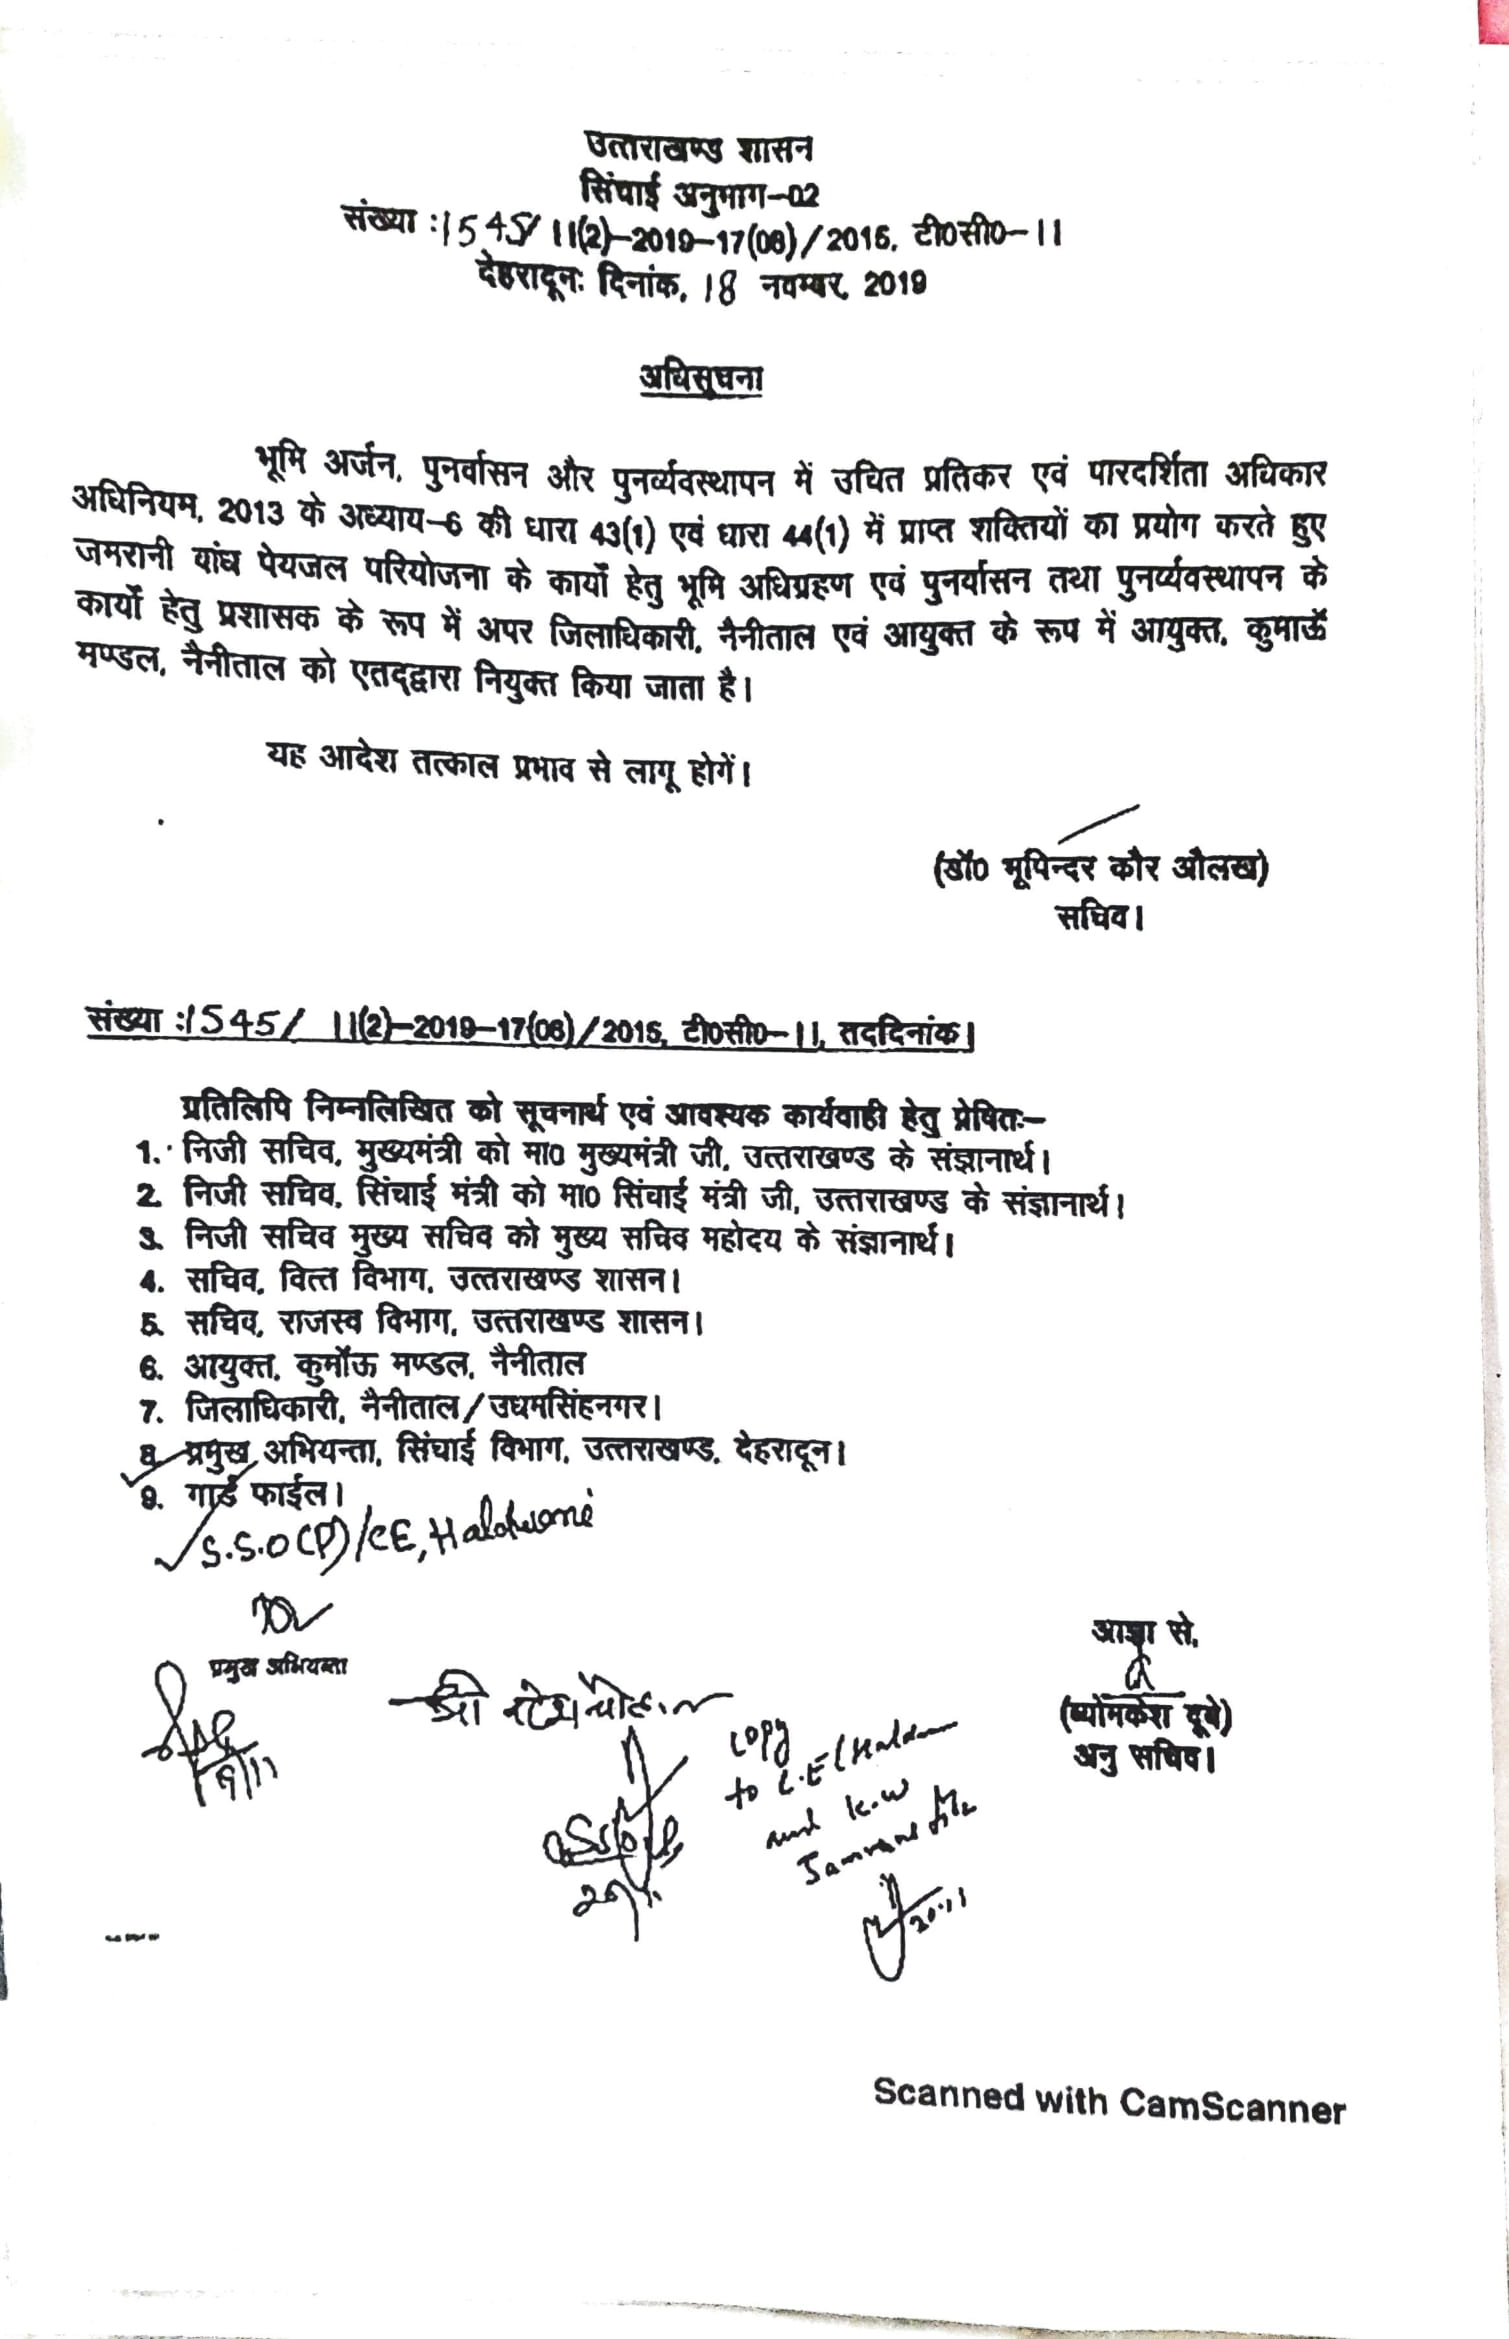 उत्तराखण्ड शासन
सिंचाई अनुभाग-02
संख्या :1545/ 11(2)-2019-17(06)/2015, टी0सी0-11
देहरादूनः दिनांक, 18 नवम्बर, 2019
अधिसूचना
भूमि अर्जन, पुनर्वासन और पुनर्व्यवस्थापन में उचित प्रतिकर एवं पारदर्शिता अधिकार
अधिनियम, 2013 के अध्याय-6 की धारा 43(1) एवं धारा 44(1) में प्राप्त शक्तियों का प्रयोग करते हुए
जमरानी बांध पेयजल परियोजना के कार्यों हेतु भूमि अधिग्रहण एवं पुनर्वासन तथा पुनर्व्यवस्थापन के
कार्यों हेतु प्रशासक के रूप में अपर जिलाधिकारी, नैनीताल एवं आयुक्त के रूप में आयुक्त, कुमाऊँ
मण्डल, नैनीताल को एतद्द्वारा नियुक्त किया जाता है।
यह आदेश तत्काल प्रभाव से लागू होगें।
(डॉ0 भूपिन्दर कौर औलख)
सचिव।
संख्या :1545/ 11(2)-2019-17(06)/2015, टी0सी0-11, तददिनांक।
प्रतिलिपि निम्नलिखित को सूचनार्थ एवं आवश्यक कार्यवाही हेतु प्रेषितः-
1. निजी सचिव, मुख्यमंत्री को मा0 मुख्यमंत्री जी, उत्तराखण्ड के संज्ञानार्थ।
2. निजी सचिव, सिंचाई मंत्री को मा0 सिंचाई मंत्री जी, उत्तराखण्ड के संज्ञानार्थ।
3. निजी सचिव मुख्य सचिव को मुख्य सचिव महोदय के संज्ञानार्थ।
4. सचिव, वित्त विभाग, उत्तराखण्ड शासन।
5. सचिव, राजस्व विभाग, उत्तराखण्ड शासन।
6. आयुक्त, कुमॉऊ मण्डल, नैनीताल
7. जिलाधिकारी, नैनीताल/उधमसिंहनगर।
8. प्रमुख अभियन्ता, सिंचाई विभाग, उत्तराखण्ड, देहरादून।
9. गार्ड फाईल।
S.S.O(P)/CE, Haldwani
आज्ञा से,
प्रमुख अभियन्ता
(ब्योमकेश दूबे)
अनु सचिव।
श्री
copy
to C.E (
and
20.11
Scanned with CamScanner